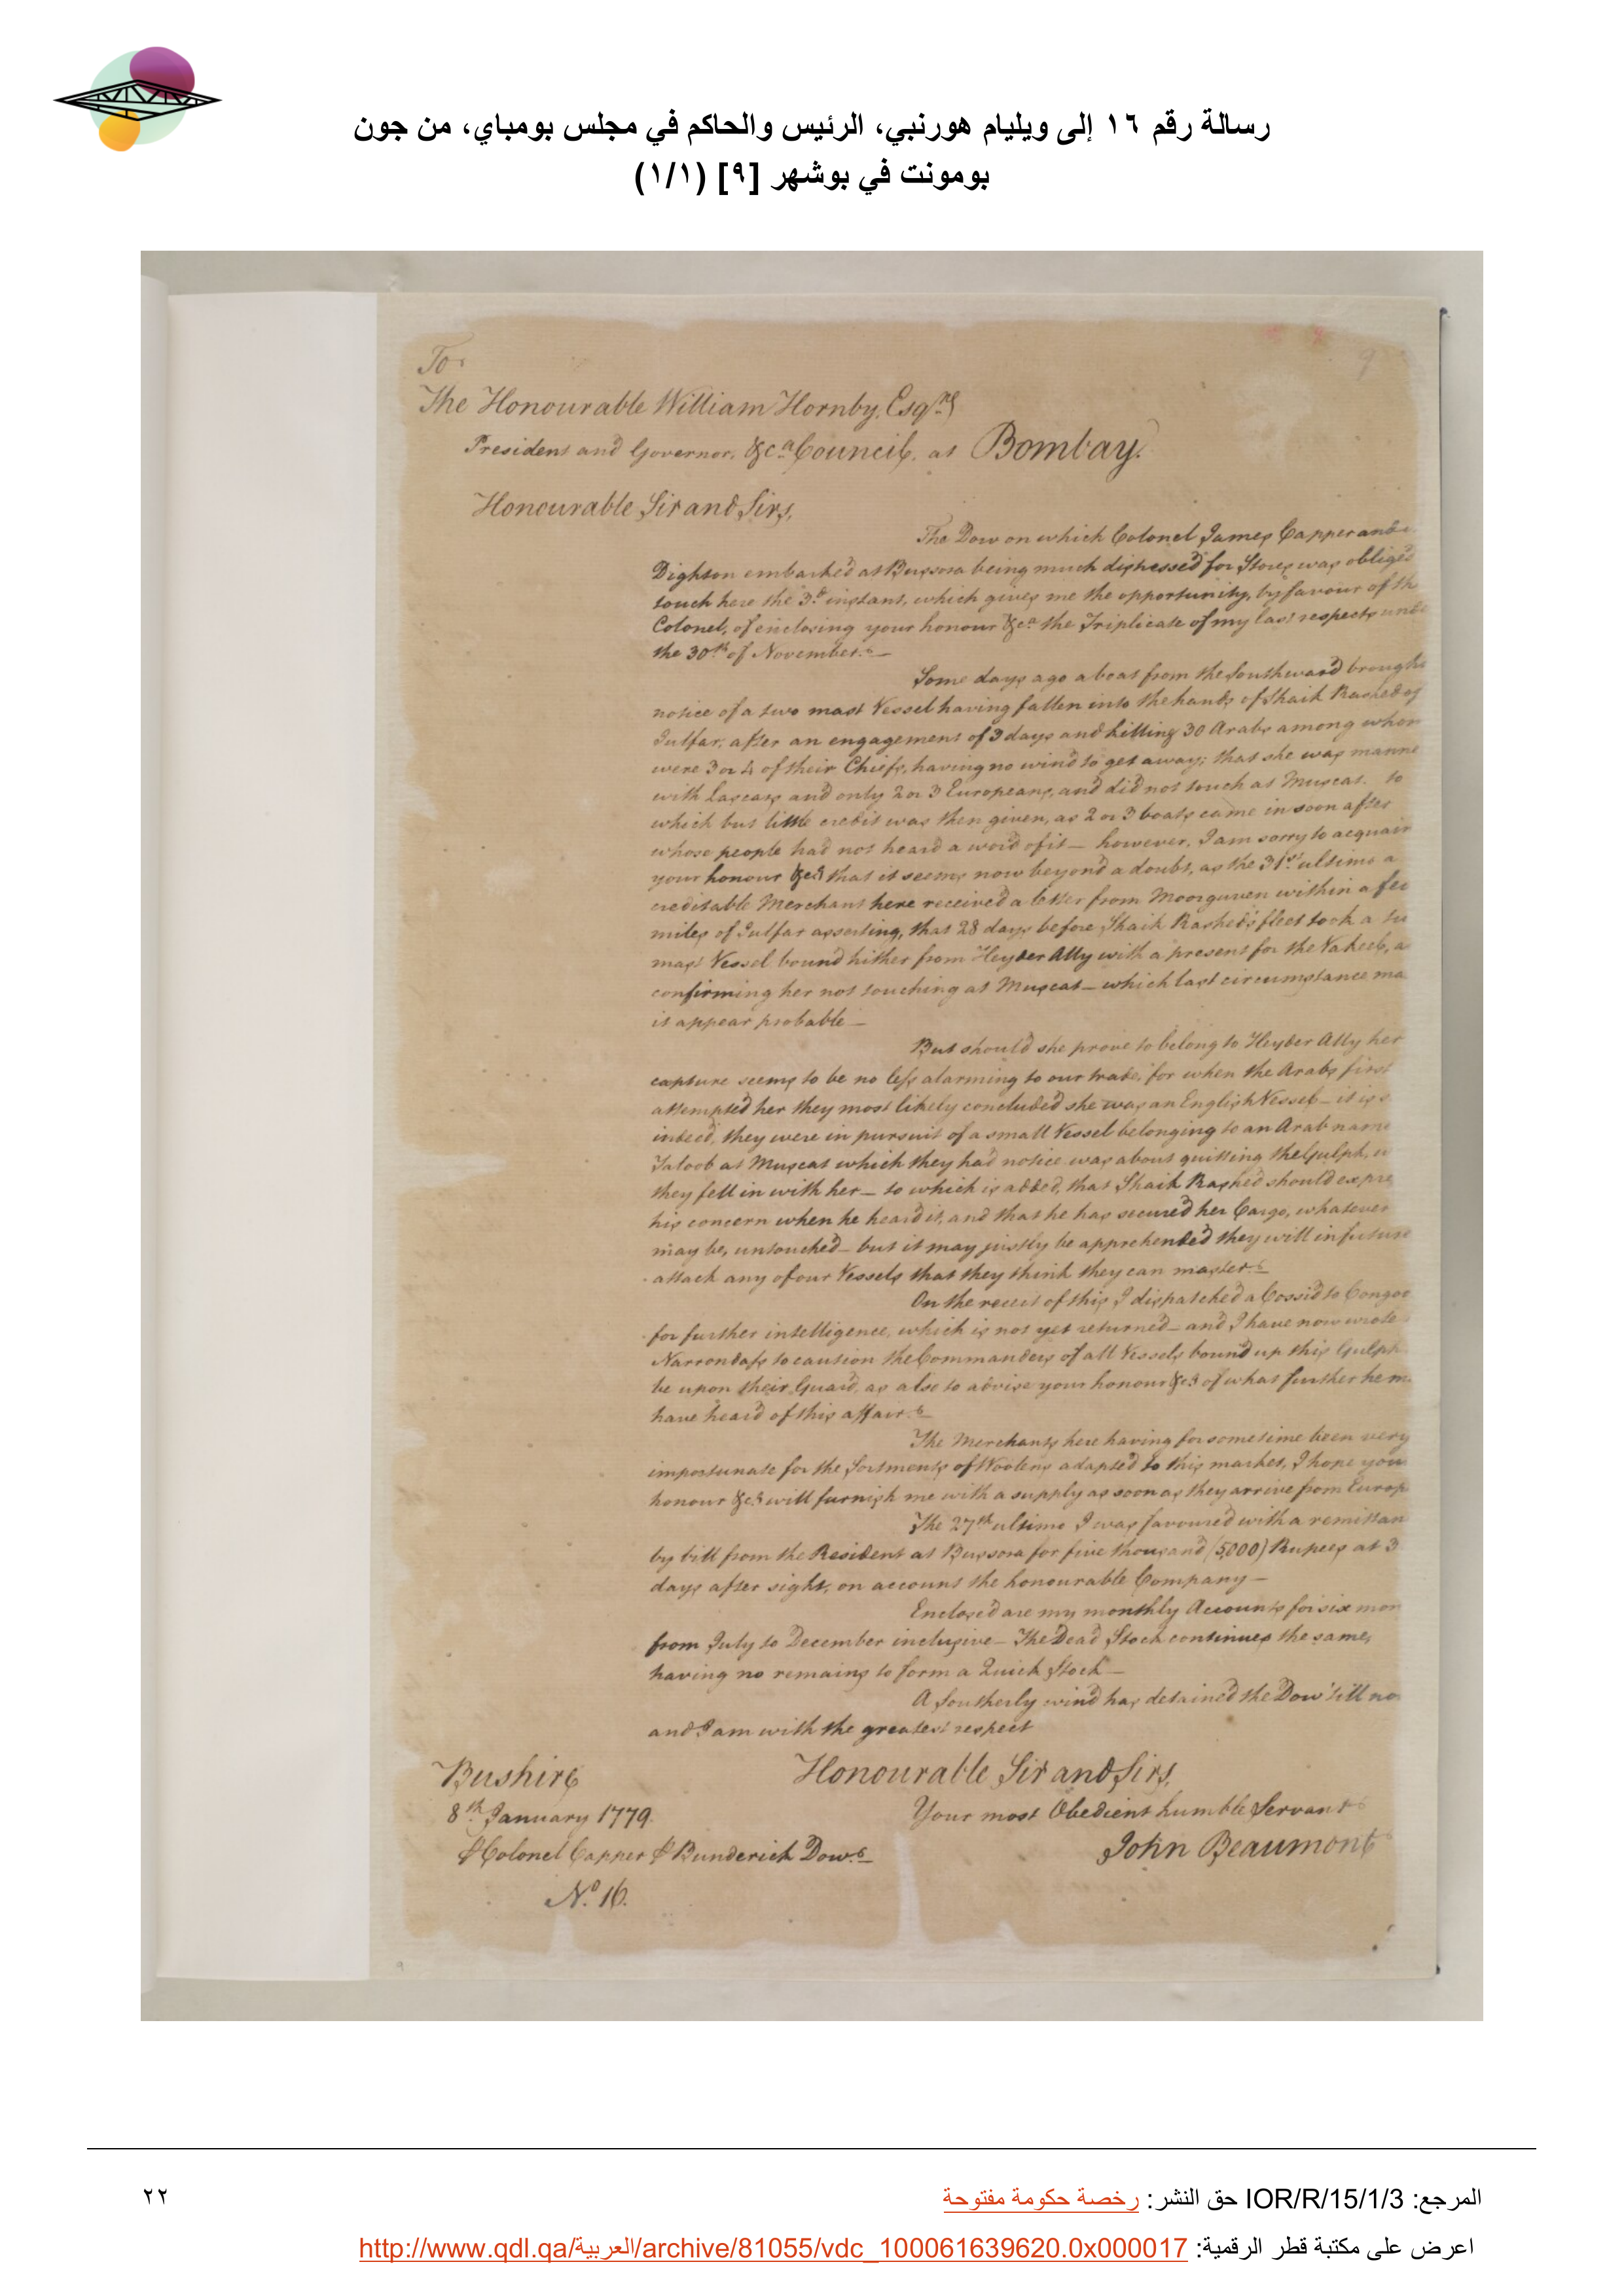 رسالة رقم ١٦ إلى ويليام هورنبي، الرئيس والحاكم في مجلس بومباي، من جون
بومونت في بوشهر [٩] (١/١)
9
To
The Honourable William Hornby, Esqre
President and Governor, &ca Council, at Bombay.
Honourable Sir and Sirs,
The Dow on which Colonel James Capper and
Dighton embarked at Bussora being much distressed for Stores was obliged
touch here the 3d instant, which gives me the opportunity, by favour of th
Colonel, of enclosing your honour &ca the Triplicate of my last respects unde
the 30th of November.—
Some days ago a boat from the Southward brough
notice of a two mast Vessel having fallen into the hands of Shaik Rashed of
Julfar, after an engagement of 3 days and killing 30 Arabs among whom
were 3 or 4 of their Chiefs, having no wind to get away; that she was manne
with Lascars and only 2 or 3 Europeans, and did not touch at Muscat. to
which but little credit was then given, as 2 or 3 boats came in soon after
whose people had not heard a word of it — however, I am sorry to acquain
your honour &ca that it seems now beyond a doubt, as the 31st ultimo a
creditable Merchant here received a letter from Moorguven within a few
miles of Julfar asserting, that 28 days before Shaik Rashed's fleet took a tw
mast Vessel bound hither from Heyder Ally with a present for the Vakeel, a
confirming her not touching at Muscat — which last circumstance ma
it appear probable —
But should she prove to belong to Heyder Ally her
capture seems to be no less alarming to our trade, for when the Arabs first
attempted her they most likely concluded she was an English Vessel — it is s
indeed, they were in pursuit of a small Vessel belonging to an Arab name
Jaloob at Muscat which they had notice was about quitting the Gulph, w
they fell in with her — to which is added, that Shaik Rashed should expre
his concern when he heard it, and that he has secured her Cargo, whatever
may be, untouched — but it may justly be apprehended they will in future
attack any of our Vessels that they think they can master.—
On the receit of this I dispatched a Cossid to Congoo
for further intelligence, which is not yet returned — and I have now wrote
Narrondass to caution the Commanders of all Vessels bound up this Gulph
be upon their Guard, as also to advise your honour &ca of what further he m
have heard of this affair.—
The Merchants here having for sometime been very
importunate for the Sortments of Woolens adapted to this market, I hope you
honour &ca will furnish me with a supply as soon as they arrive from Europ
The 27th ultimo I was favoured with a remittan
by bill from the Resident at Bussora for five thousand (5,000) Rupees at 3
days after sight, on account the honourable Company —
Enclosed are my monthly Accounts for six mon
from July to December inclusive — The Dead Stock continues the same,
having no remains to form a Quick Stock —
A Southerly wind has detained the Dow 'till no
and I am with the greatest respect
Honourable Sir and Sirs,
Your most Obedient humble Servant
John Beaumont
Bushire
8th January 1779.
⅌ Colonel Capper ⅌ Bunderick Dow.—
No. 16.
9
المرجع: IOR/R/15/1/3 حق النشر: رخصة حكومة مفتوحة
٢٢
اعرض على مكتبة قطر الرقمية: http://www.qdl.qa/العربية/archive/81055/vdc_100061639620.0x000017